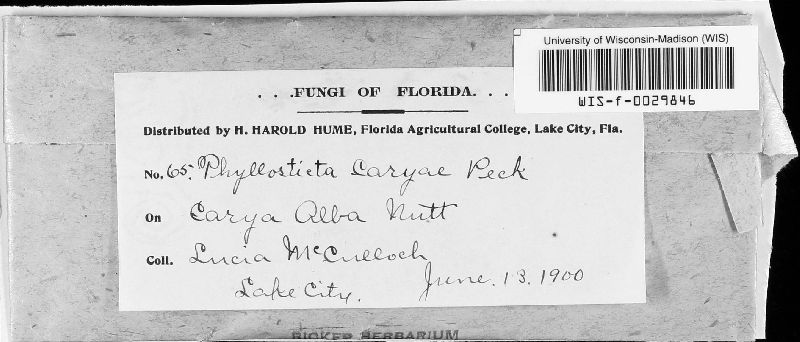 University of Wisconsin-Madison (WIS)
WIS-f-0029846
. . .FUNGI OF FLORIDA. . .
Distributed by H. HAROLD HUME, Florida Agricultural College, Lake City, Fla.
No. 65. Phyllosticta Caryae Peck
On Carya Alba Nutt
Coll. Lucia McCulloch
Lake City. June. 13. 1900
RICKER HERBARIUM